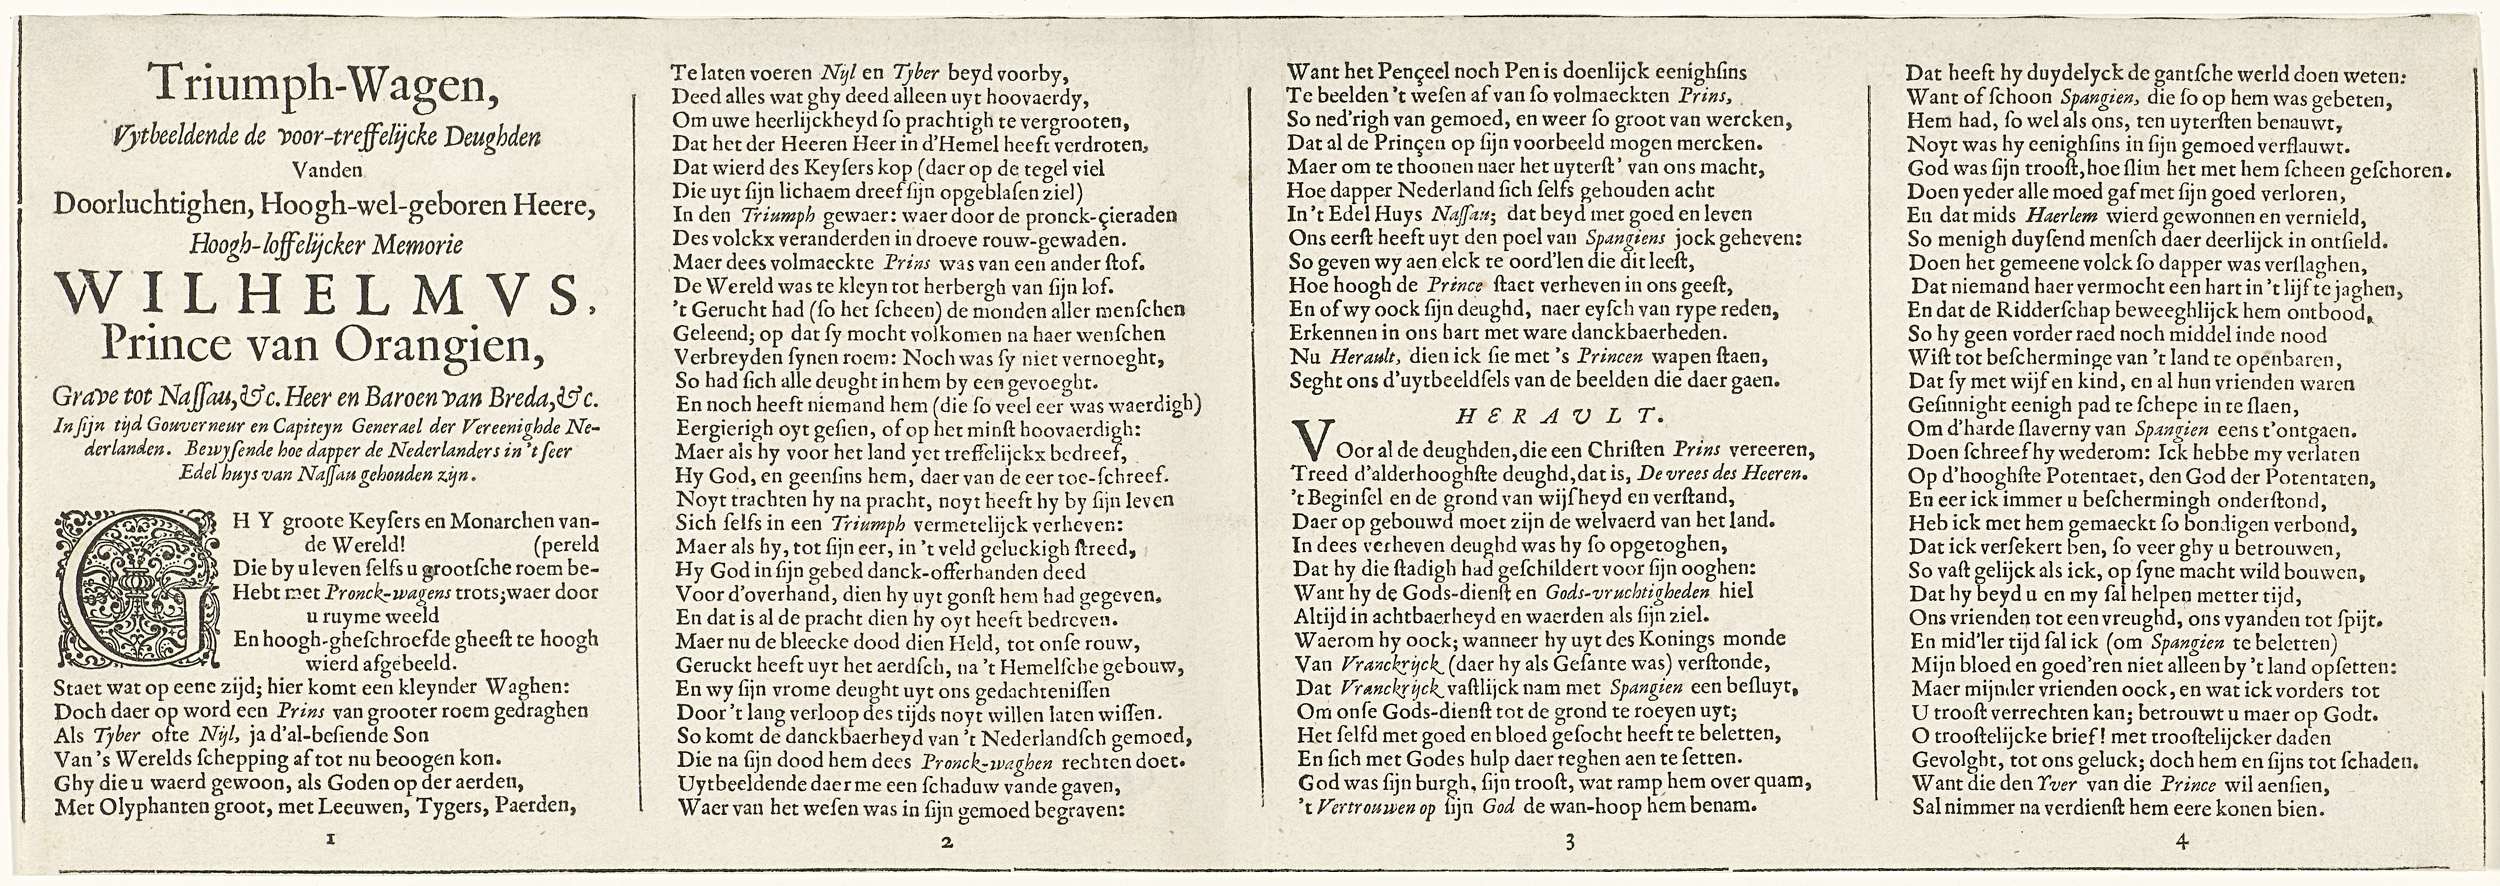 Triumph-Wagen,
Vytbeeldende de voor-treffelijcke Deughden
Vanden
Doorluchtighen, Hoogh-wel-geboren Heere,
Hoogh-loffelijcker Memorie
WILHELMVS,
Prince van Orangien,
Grave tot Naſſau, &c. Heer en Baroen van Breda, &c.
In ſijn tijd Gouverneur en Capiteyn Generael der Vereenighde Ne-
derlanden. Bewyſende hoe dapper de Nederlanders in 't ſeer
Edel huys van Naſſau gehouden zijn.
GHY groote Keyſers en Monarchen van-
de Wereld! (pereld
Die by u leven ſelfs u grootſche roem be-
Hebt met Pronck-wagens trots; waer door
u ruyme weeld
En hoogh-gheſchroefde gheeſt te hoogh
wierd afgebeeld.
Staet wat op eene zijd; hier komt een kleynder Waghen:
Doch daer op word een Prins van grooter roem gedraghen
Als Tyber ofte Nijl, ja d'al-beſiende Son
Van 's Werelds ſchepping af tot nu beoogen kon.
Ghy die u waerd gewoon, als Goden op der aerden,
Met Olyphanten groot, met Leeuwen, Tygers, Paerden,
1
Te laten voeren Nijl en Tyber beyd voorby,
Deed alles wat ghy deed alleen uyt hoovaerdy,
Om uwe heerlijckheyd ſo prachtigh te vergrooten,
Dat het der Heeren Heer in d'Hemel heeft verdroten,
Dat wierd des Keyſers kop (daer op de tegel viel
Die uyt ſijn lichaem dreef ſijn opgeblaſen ziel)
In den Triumph gewaer: waer door de pronck-çieraden
Des volckx veranderden in droeve rouw-gewaden.
Maer dees volmaeckte Prins was van een ander ſtof.
De Wereld was te kleyn tot herbergh van ſijn lof.
't Gerucht had (ſo het ſcheen) de monden aller menſchen
Geleend; op dat ſy mocht volkomen na haer wenſchen
Verbreyden ſynen roem: Noch was ſy niet vernoeght,
So had ſich alle deught in hem by een gevoeght.
En noch heeft niemand hem (die ſo veel eer was waerdigh)
Eergierigh oyt geſien, of op het minſt hoovaerdigh:
Maer als hy voor het land yet treffelijckx bedreef,
Hy God, en geenſins hem, daer van de eer toe-ſchreef.
Noyt trachten hy na pracht, noyt heeft hy by ſijn leven
Sich ſelfs in een Triumph vermetelijck verheven:
Maer als hy, tot ſijn eer, in 't veld geluckigh ſtreed,
Hy God in ſijn gebed danck-offerhanden deed
Voor d'overhand, dien hy uyt gonſt hem had gegeven.
En dat is al de pracht dien hy oyt heeft bedreven.
Maer nu de bleecke dood dien Held, tot onſe rouw,
Geruckt heeft uyt het aerdſch, na 't Hemelſche gebouw,
En wy ſijn vrome deught uyt ons gedachteniſſen
Door 't lang verloop des tijds noyt willen laten wiſſen.
So komt de danckbaerheyd van 't Nederlandſch gemoed,
Die na ſijn dood hem dees Pronck-waghen rechten doet.
Uytbeeldende daer me een ſchaduw vande gaven,
Waer van het weſen was in ſijn gemoed begraven:
2
Want het Pençeel noch Pen is doenlijck eenighſins
Te beelden 't weſen af van ſo volmaeckten Prins,
So ned'righ van gemoed, en weer ſo groot van wercken,
Dat al de Prinçen op ſijn voorbeeld mogen mercken.
Maer om te thoonen naer het uyterſt' van ons macht,
Hoe dapper Nederland ſich ſelfs gehouden acht
In 't Edel Huys Naſſau; dat beyd met goed en leven
Ons eerſt heeft uyt den poel van Spangiens jock geheven:
So geven wy aen elck te oord'len die dit leeſt,
Hoe hoogh de Prince ſtaet verheven in ons geeſt,
En of wy oock ſijn deughd, naer eyſch van rype reden,
Erkennen in ons hart met ware danckbaerheden.
Nu Herault, dien ick ſie met 's Princen wapen ſtaen,
Seght ons d'uytbeeldſels van de beelden die daer gaen.
HERAULT.
VOor al de deughden, die een Chriſten Prins vereeren,
Treed d'alderhooghſte deughd, dat is, De vrees des Heeren.
't Beginſel en de grond van wijſheyd en verſtand,
Daer op gebouwd moet zijn de welvaerd van het land.
In dees verheven deughd was hy ſo opgetoghen,
Dat hy die ſtadigh had geſchildert voor ſijn ooghen:
Want hy de Gods-dienſt en Gods-vruchtigheden hiel
Altijd in achtbaerheyd en waerden als ſijn ziel.
Waerom hy oock; wanneer hy uyt des Konings monde
Van Vranckrijck (daer hy als Geſante was) verſtonde,
Dat Vranckrijck vaſtlijck nam met Spangien een beſluyt,
Om onſe Gods-dienſt tot de grond te roeyen uyt;
Het ſelfd met goed en bloed geſocht heeft te beletten,
En ſich met Godes hulp daer teghen aen te ſetten.
God was ſijn burgh, ſijn trooſt, wat ramp hem over quam,
't Vertrouwen op ſijn God de wan-hoop hem benam.
3
Dat heeft hy duydelyck de gantſche werld doen weten:
Want of ſchoon Spangien, die ſo op hem was gebeten,
Hem had, ſo wel als ons, ten uyterſten benauwt,
Noyt was hy eenighſins in ſijn gemoed verflauwt.
God was ſijn trooſt, hoe ſlim het met hem ſcheen geſchoren.
Doen yeder alle moed gaf met ſijn goed verloren,
En dat mids Haerlem wierd gewonnen en vernield,
So menigh duyſend menſch daer deerlijck in ontſield.
Doen het gemeene volck ſo dapper was verſlaghen,
Dat niemand haer vermocht een hart in 't lijf te jaghen,
En dat de Ridderſchap beweeghlijck hem ontbood,
So hy geen vorder raed noch middel inde nood
Wiſt tot beſcherminge van 't land te openbaren,
Dat ſy met wijf en kind, en al hun vrienden waren
Geſinnight eenigh pad te ſchepe in te ſlaen,
Om d'harde ſlaverny van Spangien eens t'ontgaen.
Doen ſchreef hy wederom: Ick hebbe my verlaten
Op d'hooghſte Potentaet, den God der Potentaten,
En eer ick immer u beſchermingh onderſtond,
Heb ick met hem gemaeckt ſo bondigen verbond,
Dat ick verſekert ben, ſo veer ghy u betrouwen,
So vaſt gelijck als ick, op ſyne macht wild bouwen,
Dat hy beyd u en my ſal helpen metter tijd,
Ons vrienden tot een vreughd, ons vyanden tot ſpijt.
En mid'ler tijd ſal ick (om Spangien te beletten)
Mijn bloed en goed'ren niet alleen by 't land opſetten:
Maer mijnder vrienden oock, en wat ick vorders tot
U trooſt verrechten kan; betrouwt u maer op Godt.
O trooſtelijcke brief! met trooſtelijcker daden
Gevolght, tot ons geluck; doch hem en ſijns tot ſchaden.
Want die den Yver van die Prince wil aenſien,
Sal nimmer na verdienſt hem eere konen bien.
4